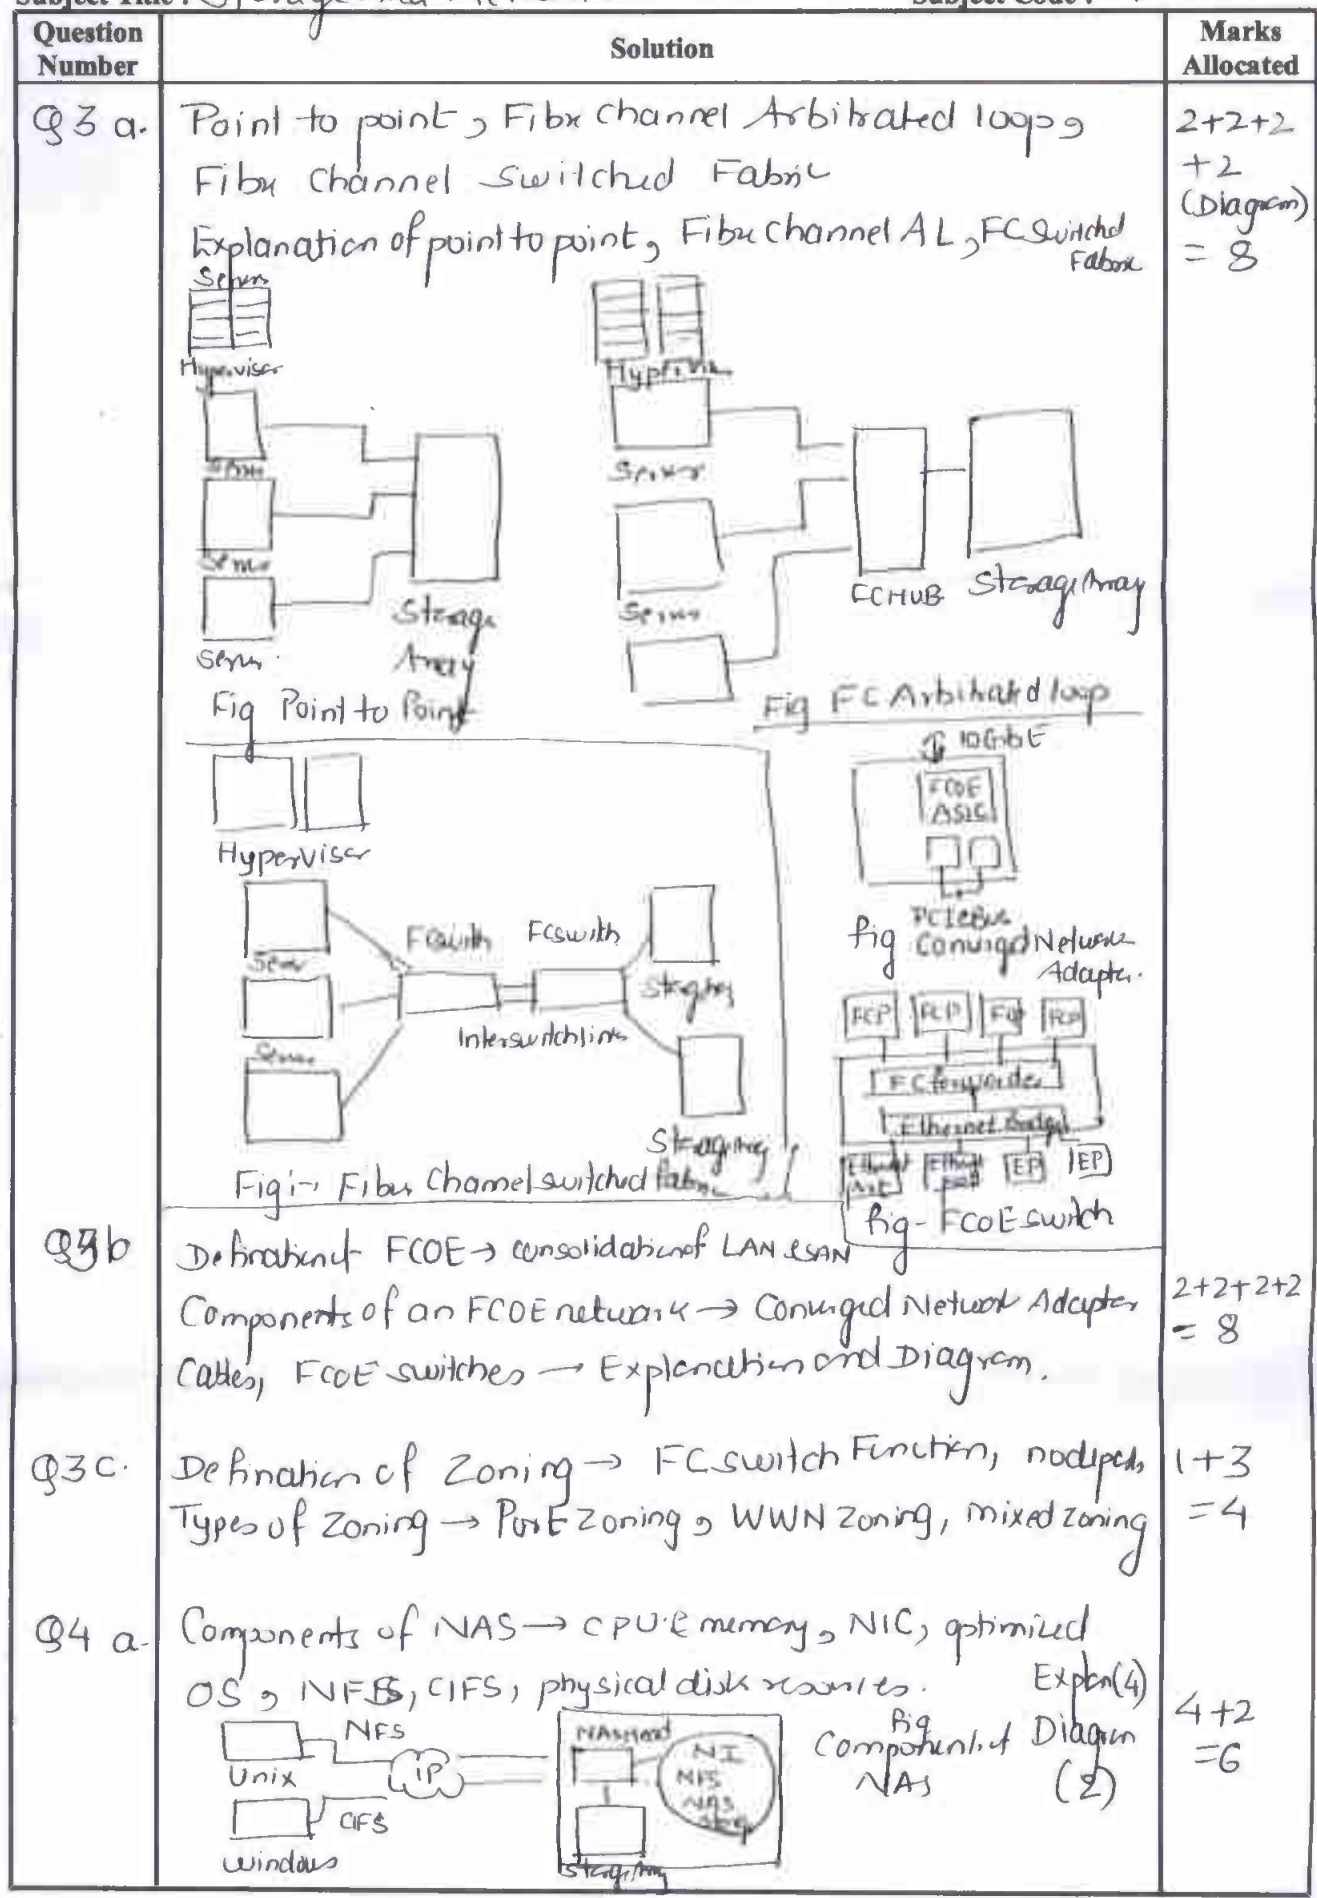 Question Number
Solution
Marks Allocated
Q3 a.
Point to point, Fibre Channel Arbitrated loop,
Fibre Channel Switched Fabric
Explanation of point to point, Fibre Channel AL, FC Switched Fabric
2+2+2
+2
(Diagram)
= 8
Servers
Hypervisor
Server
Server
Server
Storage
Array
Fig Point to Point
Hypervisor
Server
Server
FCHUB
Storage Array
Fig FC Arbitrated loop
Hypervisor
Server
Server
FC switch
FC switch
Interswitchlink
Storage Array
Storage Array
Fig:- Fibre Channel switched fabric
10GbE
FCOE
ASIC
PCIe Bus
fig Converged Network
Adapter.
FCP
FCP
FCP
FCP
FC forwarder
Ethernet Bridge
Ethernet Port
Ethernet Port
EP
EP
fig - FCOE switch
Q3b
Defination of FCOE → consolidation of LAN & SAN
Components of an FCOE network → Converged Network Adapter
Cables, FCOE switches — Explanation and Diagram.
2+2+2+2
= 8
Q3C.
Defination of Zoning → FC switch Function, node ports
Types of Zoning → Port Zoning, WWN Zoning, mixed zoning
1+3
= 4
Q4 a-
Components of NAS → CPU & memory, NIC, optimized
OS, NFS, CIFS, physical disk resources.
Explan(4)
Diagram
(2)
4+2
=6
Unix
NFS
IP
Windows
CIFS
NAS Head
NI
NFS
NAS
Storage Array
fig
Component of
NAS